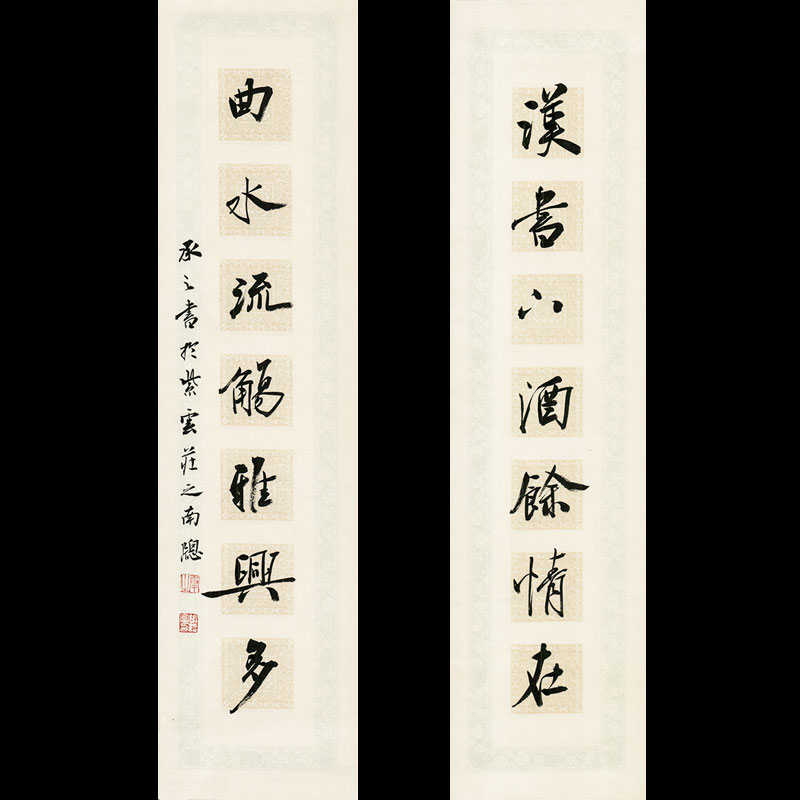 漢書下酒餘情在
曲水流觴雅興多
承之書於紫雲莊之南窗